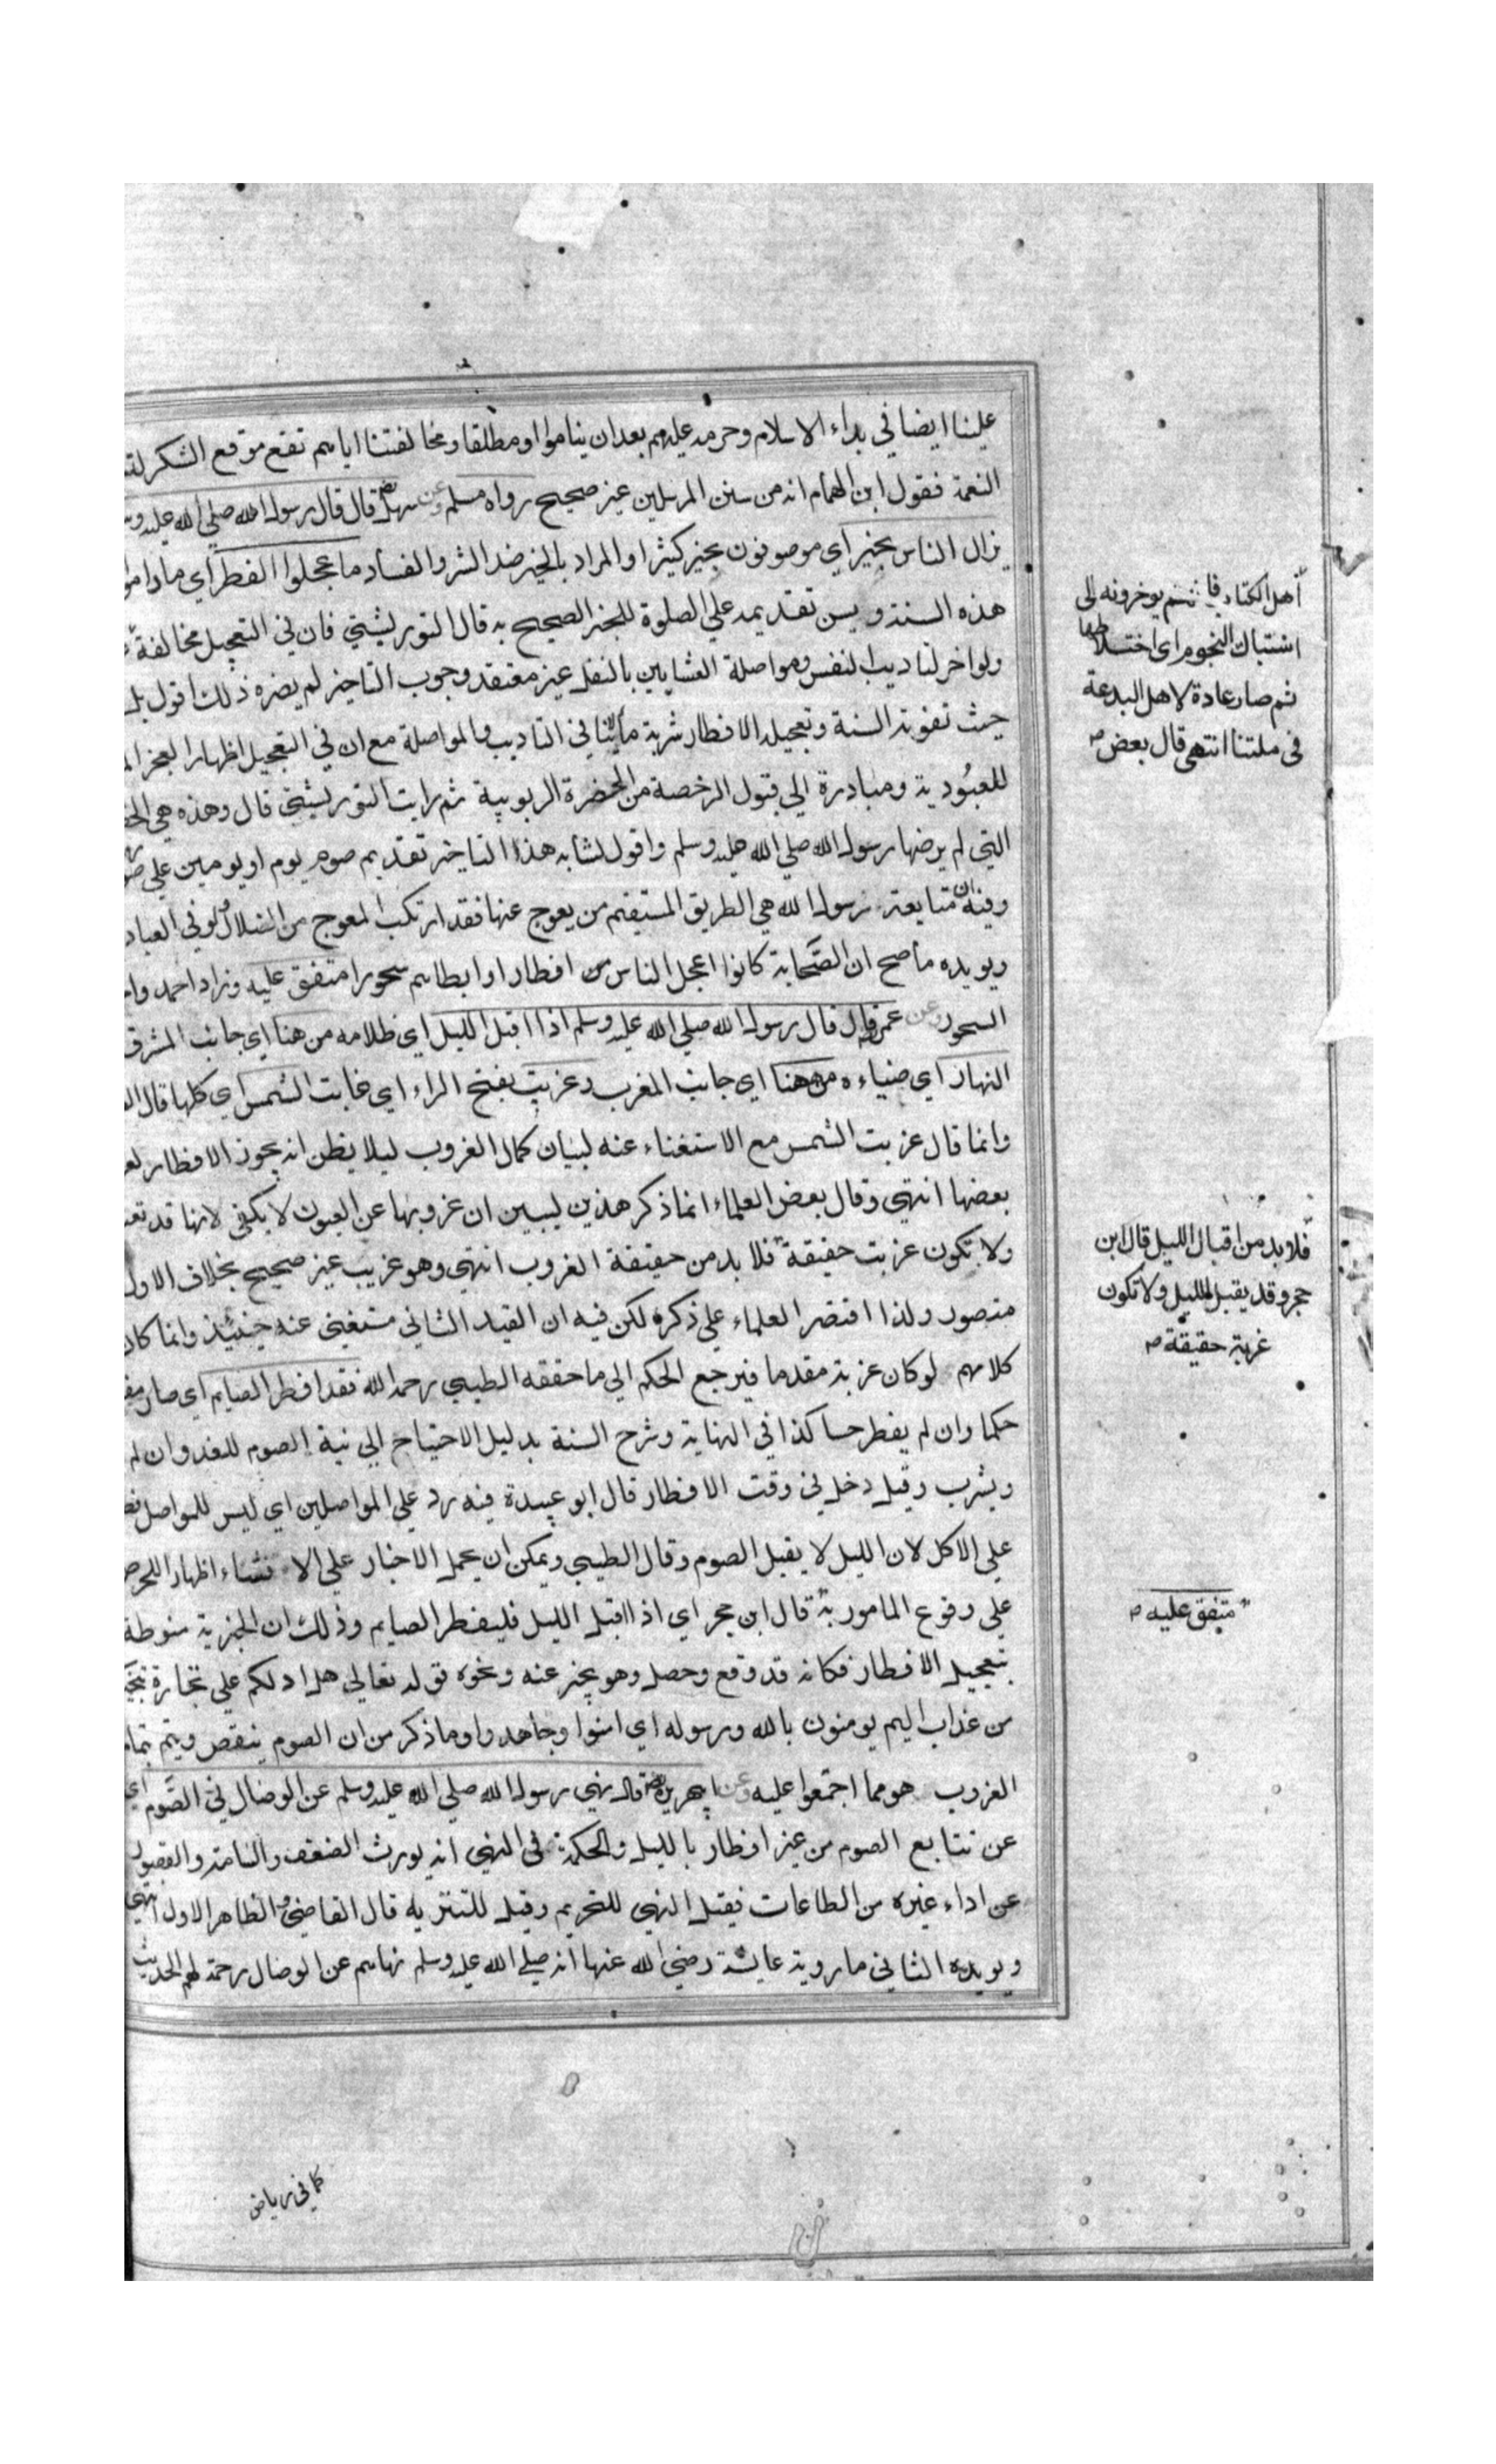 علينا ايضا في بداء الاسلام وحرمه عليهم بعد ان يناموا او مطلقا ومخالفتنا اياهم تقع موقع الشكر
النعمة فقول ابن الهمام انه من سنن المرسلين غير صحيح رواه مسلم وعن سهل قال قال رسول الله صلي الله عليه
يزال الناس بخير اي موصوفون بخير كثير او المراد بالخير ضد الشر والفساد ما عجلوا الفطر اي ما داموا
هذه السنة ويسن تقديمه علي الصلوة للخبر الصحيح به قال التوربشتي فان في التعجيل مخالفة
ولو اخر لتاديب النفس ومواصلة العشايين بالنفل غير معتقد وجوب التاخير لم يضره ذلك اقول بل
حيث تفوته السنة وتعجيله الافطار شربة ماء لا ينافي التاديب والمواصلة مع ان في التعجيل اظهار العجز
للعبُودية ومبادرة الي قبول الرخصة من الحضرة الربوبية ثم رايت التوربشتي قال وهذه هي
التي لم يرضها رسول الله صلي الله عليه وسلم واقول لشابه هذا التاخير تقديم صوم يوم او يومين علي
وفيه ان متابعة رسول الله هي الطريق المستقيم من يعوج عنها فقد ارتكب المعوج من الضلال ولو في
ويويده ما صح ان الصَّحابة كانوا اعجل الناس افطارا وابطاهم سحورا متفق عليه وزاد احمد
السحور وعن عمر قال قال رسول الله صلي الله عليه وسلم اذا اقبل الليل اي ظلامه من هنا اي جانب المشرق
النهار اي ضياءه من ههنا اي جانب المغرب وغربت بفتح الراء اي غابت الشمس اي كلها قال
وانما قال غربت الشمس مع الاستغناء عنه لبيان كمال الغروب ليلا يظن انه يجوز الافطار
بعضها انتهي وقال بعض العلماء انما ذكر هذين ليبين ان غروبها عن العيون لا يكفي لانها قد
ولا تكون غربت حقيقة فلا بد من حقيقة الغروب انتهي وهو غريب غير صحيح بخلاف الاول
متصور ولذا اقتصر العلماء علي ذكره لكن فيه ان القيد الثاني مستغني عنه حينئذ وانما كان
كلامهم لو كان غربة مقدما فيرجع الحكم الي ما حققه الطيبي رحمه الله فقد افطر الصايم اي صار
حكما وان لم يفطر حسا كذا في النهاية وشرح السنة بدليل الاحتياج الي نية الصوم للغد وان لم
ويشرب وقيل دخل في وقت الافطار قال ابو عبيدة فيه رد علي المواصلين اي ليس للمواصل
علي الاكل لان الليل لا يقبل الصوم وقال الطيبي ويمكن ان يحمل الاخبار علي الانشاء اظهارا للحرص
علي وقوع المامور به قال ابن حجر اي اذا اقبل الليل فليفطر الصايم وذلك ان الخيرية منوطة
بتعجيل الافطار فكانه قد وقع وحصل وهو يخبر عنه ونحوه قوله تعالي هل ادلكم علي تجارة
من عذاب اليم يومنون بالله ورسوله اي امنوا وجاهدوا وما ذكر من ان الصوم ينقص ويتم
الغروب هو مما اجتمعوا عليه وعن ابي هريرة قال نهي رسول الله صلي الله عليه وسلم عن الوصال في الصَّوم اي
عن تتابع الصوم من غير افطار بالليل والحكمة في النهي انه يورث الضعف والسامة والقصور
عن اداء غيره من الطاعات فقيل النهي للتحريم وقيل للتنزيه قال القاضي والظاهر الاول انتهي
ويويده الثاني ما روية عايشة رضي الله عنها انه صلي الله عليه وسلم نهاهم عن الوصال رحمة لهم الحديث
اهل الكتاب فانهم يوخرونه الى
اشتباك النجوم اى اختلاطها
ثم صار عادة لاهل البدعة
فى ملتنا انتهى قال بعض
فلا بد من اقبال الليل قال ابن
حجر وقد يقبل الليل ولا تكون
غربة حقيقة
متفق عليه
كما في رياض